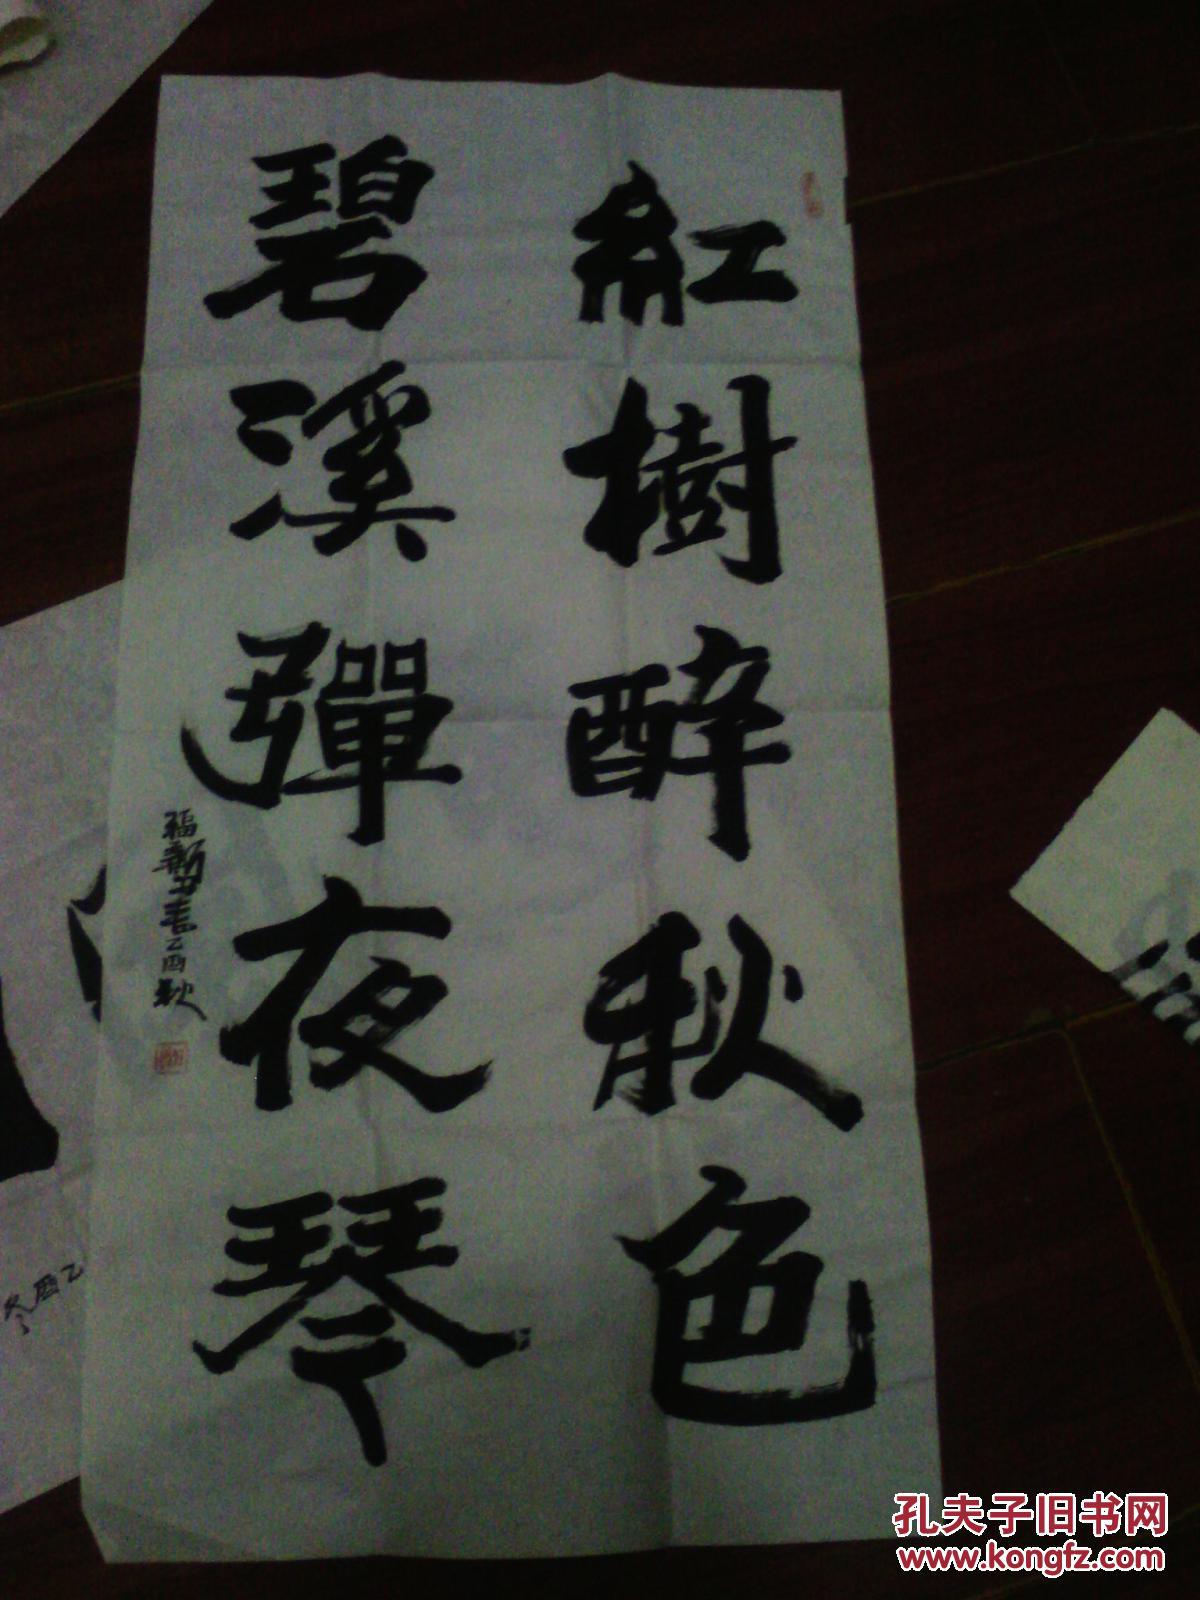 紅樹醉秋色
碧溪彈夜琴
福新书乙酉秋
乙酉冬
孔夫子旧书网
www.kongfz.com